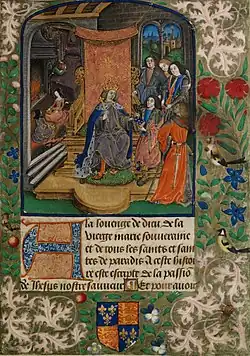 A la louenge de dieu de la
vierge marie souueraine
et de tous les saints et sain
tes de paradis A ceste histoi
re est escripte de la passio
de Ihesus nostre sauueur Et pour auoir